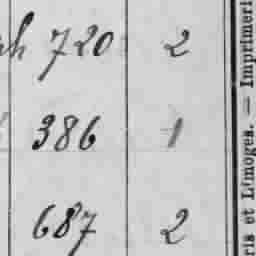 720 2
386 1
687 2
ris et Limoges. — Imprimeri